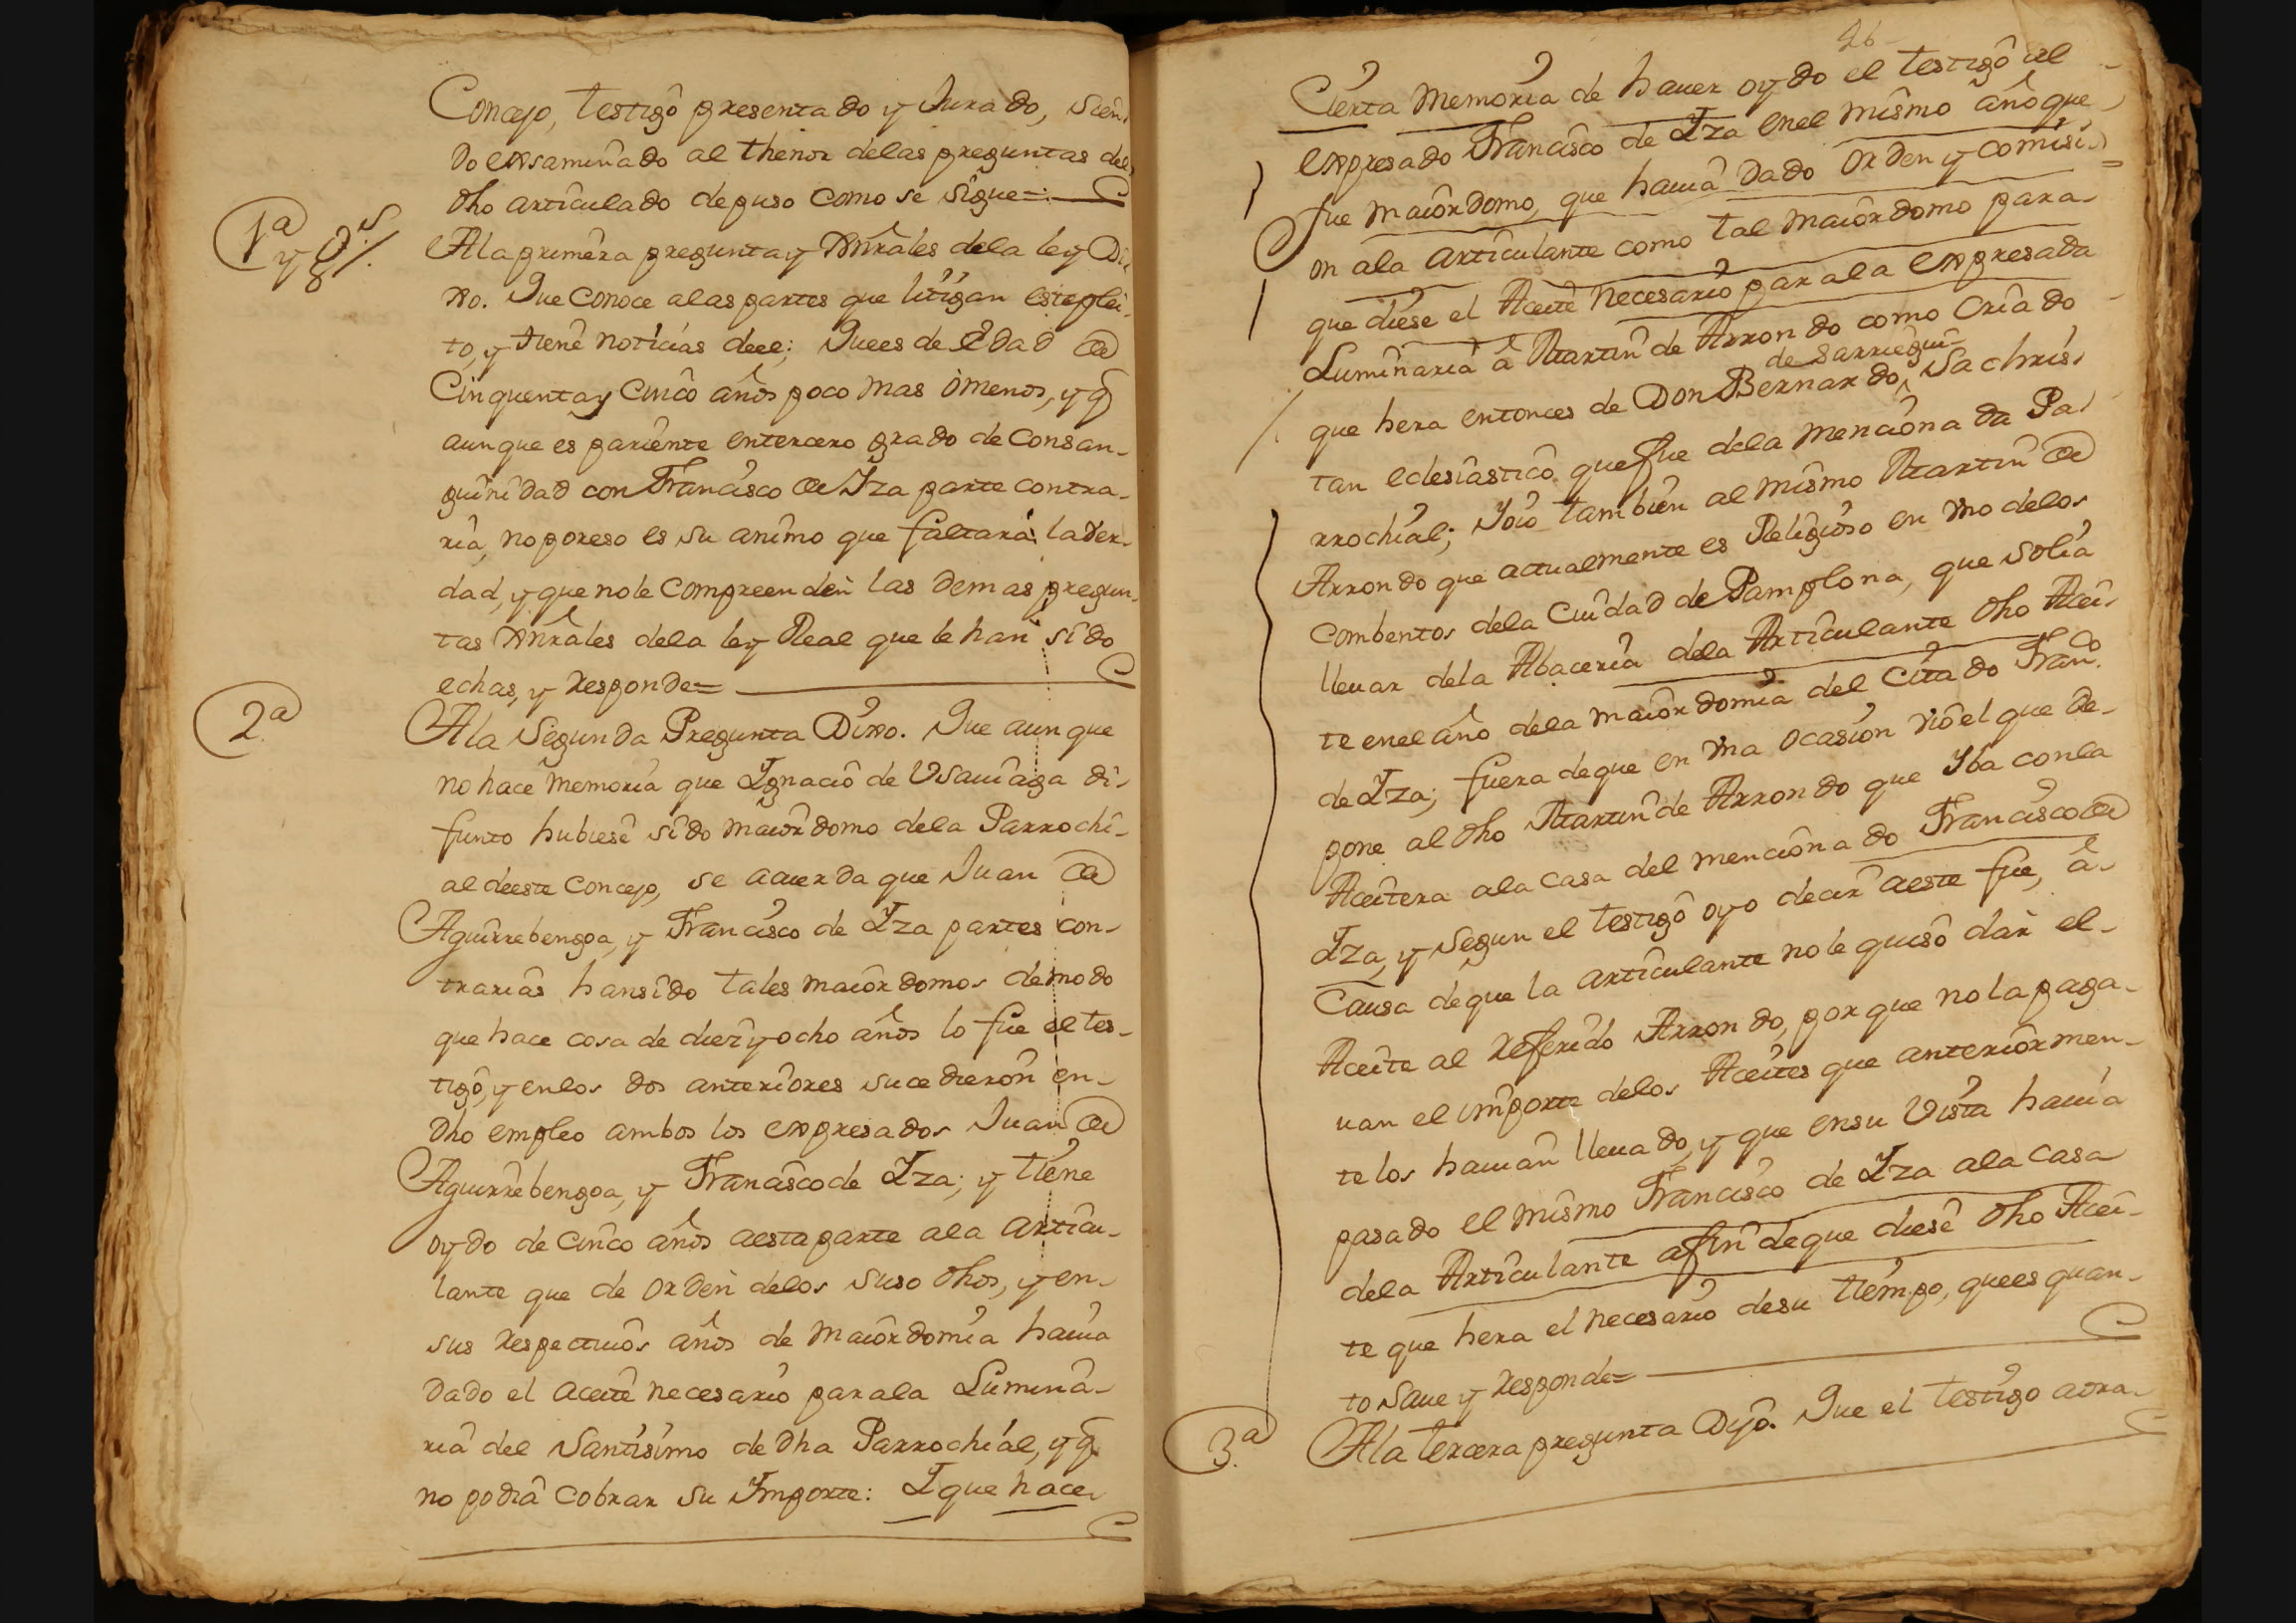 Concejo, testigo presentado y Jurado, sien-
do exsaminado al thenor delas preguntas del
dho articulado depuso como se sigue=
1ª y g.s
Ala primera pregunta y Gnrãles dela ley Di-
xo. Que conoce alas partes que litigan esteplei-
to, y tiene noticias deel; Quees de Edad de
Cinquentay cinco años poco mas ô menos, y q̃
aunque es pariente entercero grado de Consan-
guinidad con Francisco de Yza parte contra-
ria, noporeso es su animo que faltará laver-
dad, y que nole compreenden las demas pregun-
tas Gnrãles dela ley Real que le han sido
echas, y responde=
2ª
Ala Segunda Pregunta Dixo. Que aunque
no hace memoria que Ygnacio de Vsauiaga di-
funto hubiese sido maiordomo dela Parrochi-
al deeste concejo, se acuerda que Juan de
Aguirrebengoa, y Francisco de Yza partes con-
trarias hansido tales maiordomos demodo
que hace cosa de diez y ocho años lo fue el tes-
tigo, y enlos dos anteriores sucedieron en
dho empleo ambos los expresados Juan de
Aguirrebengoa, y Francisco de Yza; y tiene
oydo de cinco años aestaparte ala articu-
lante que de orden delos suso dhos, y en
sus respectivos años de maiordomia hauia
dado el aceite necesario parala Lumina-
ria del Santisimo de dha Parrochial, y q̃
no podia cobrar su Ymporte: Y que hace
26
Cierta memoria de hauer oydo el testigo al
expresado Francisco de Yza enel mismo año que
fue maiordomo, que hauia dado orden y comisi-
on ala articulante como tal maiordomo para
que diese el Aceite necesario parala expresada
Luminaria â Martin de Arrondo como Criado
de Sarriegui
que hera entonces de Don Bernardo, Sachris-
tan eclesiastico quefue dela mencionada Pa-
rrochial; Yoio tambien al mismo Martin de
Arrondo que actualmente es Religioso en vno delos
Combentos dela Ciudad de Pamplona, que solia
lleuar dela Abaceria dela Articulante dho Acei-
te enel año dela maiordomia del citado Franco
de Yza; fuera deque en vna ocasion vio el que de-
pone al dho Martin de Arrondo que Yba conla
Aceitera ala casa del mencionado Francisco de
Yza, y segun el testigo oyo decir aeste fue, â
Causa deque la articulante nole quiso dar el
Aceite al referido Arrondo, por que no la paga-
uan el importe delos Aceites que anteriormen-
te los hauian lleuado, y que ensu vista hauia
pasado el mismo Francisco de Yza ala casa
dela Articulante afin deque diese dho Acei-
te que hera el necesario desu tiempo, quees quan-
to saue y responde=
3.ª
Ala tercera pregunta Dijo. Que el testigo aora